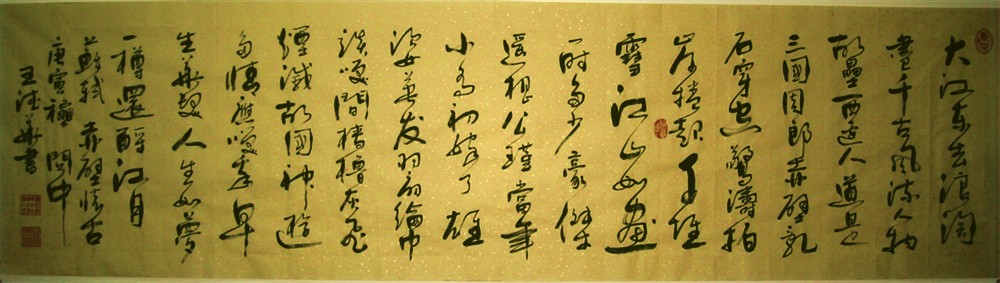 大江东去浪淘
盡千古風流人物
故壘西邊人道是
三國周郎赤壁亂
石穿空驚濤拍
岸捲起千堆
雪江山如畫
一時多少豪傑
遥想公瑾當年
小喬初嫁了雄
姿英發羽扇綸巾
談笑間檣櫓灰飛
煙滅故國神遊
多情應笑我早
生華髮人生如夢
一樽還酹江月
蘇軾赤壁懷古
庚寅穐閬中
王華書